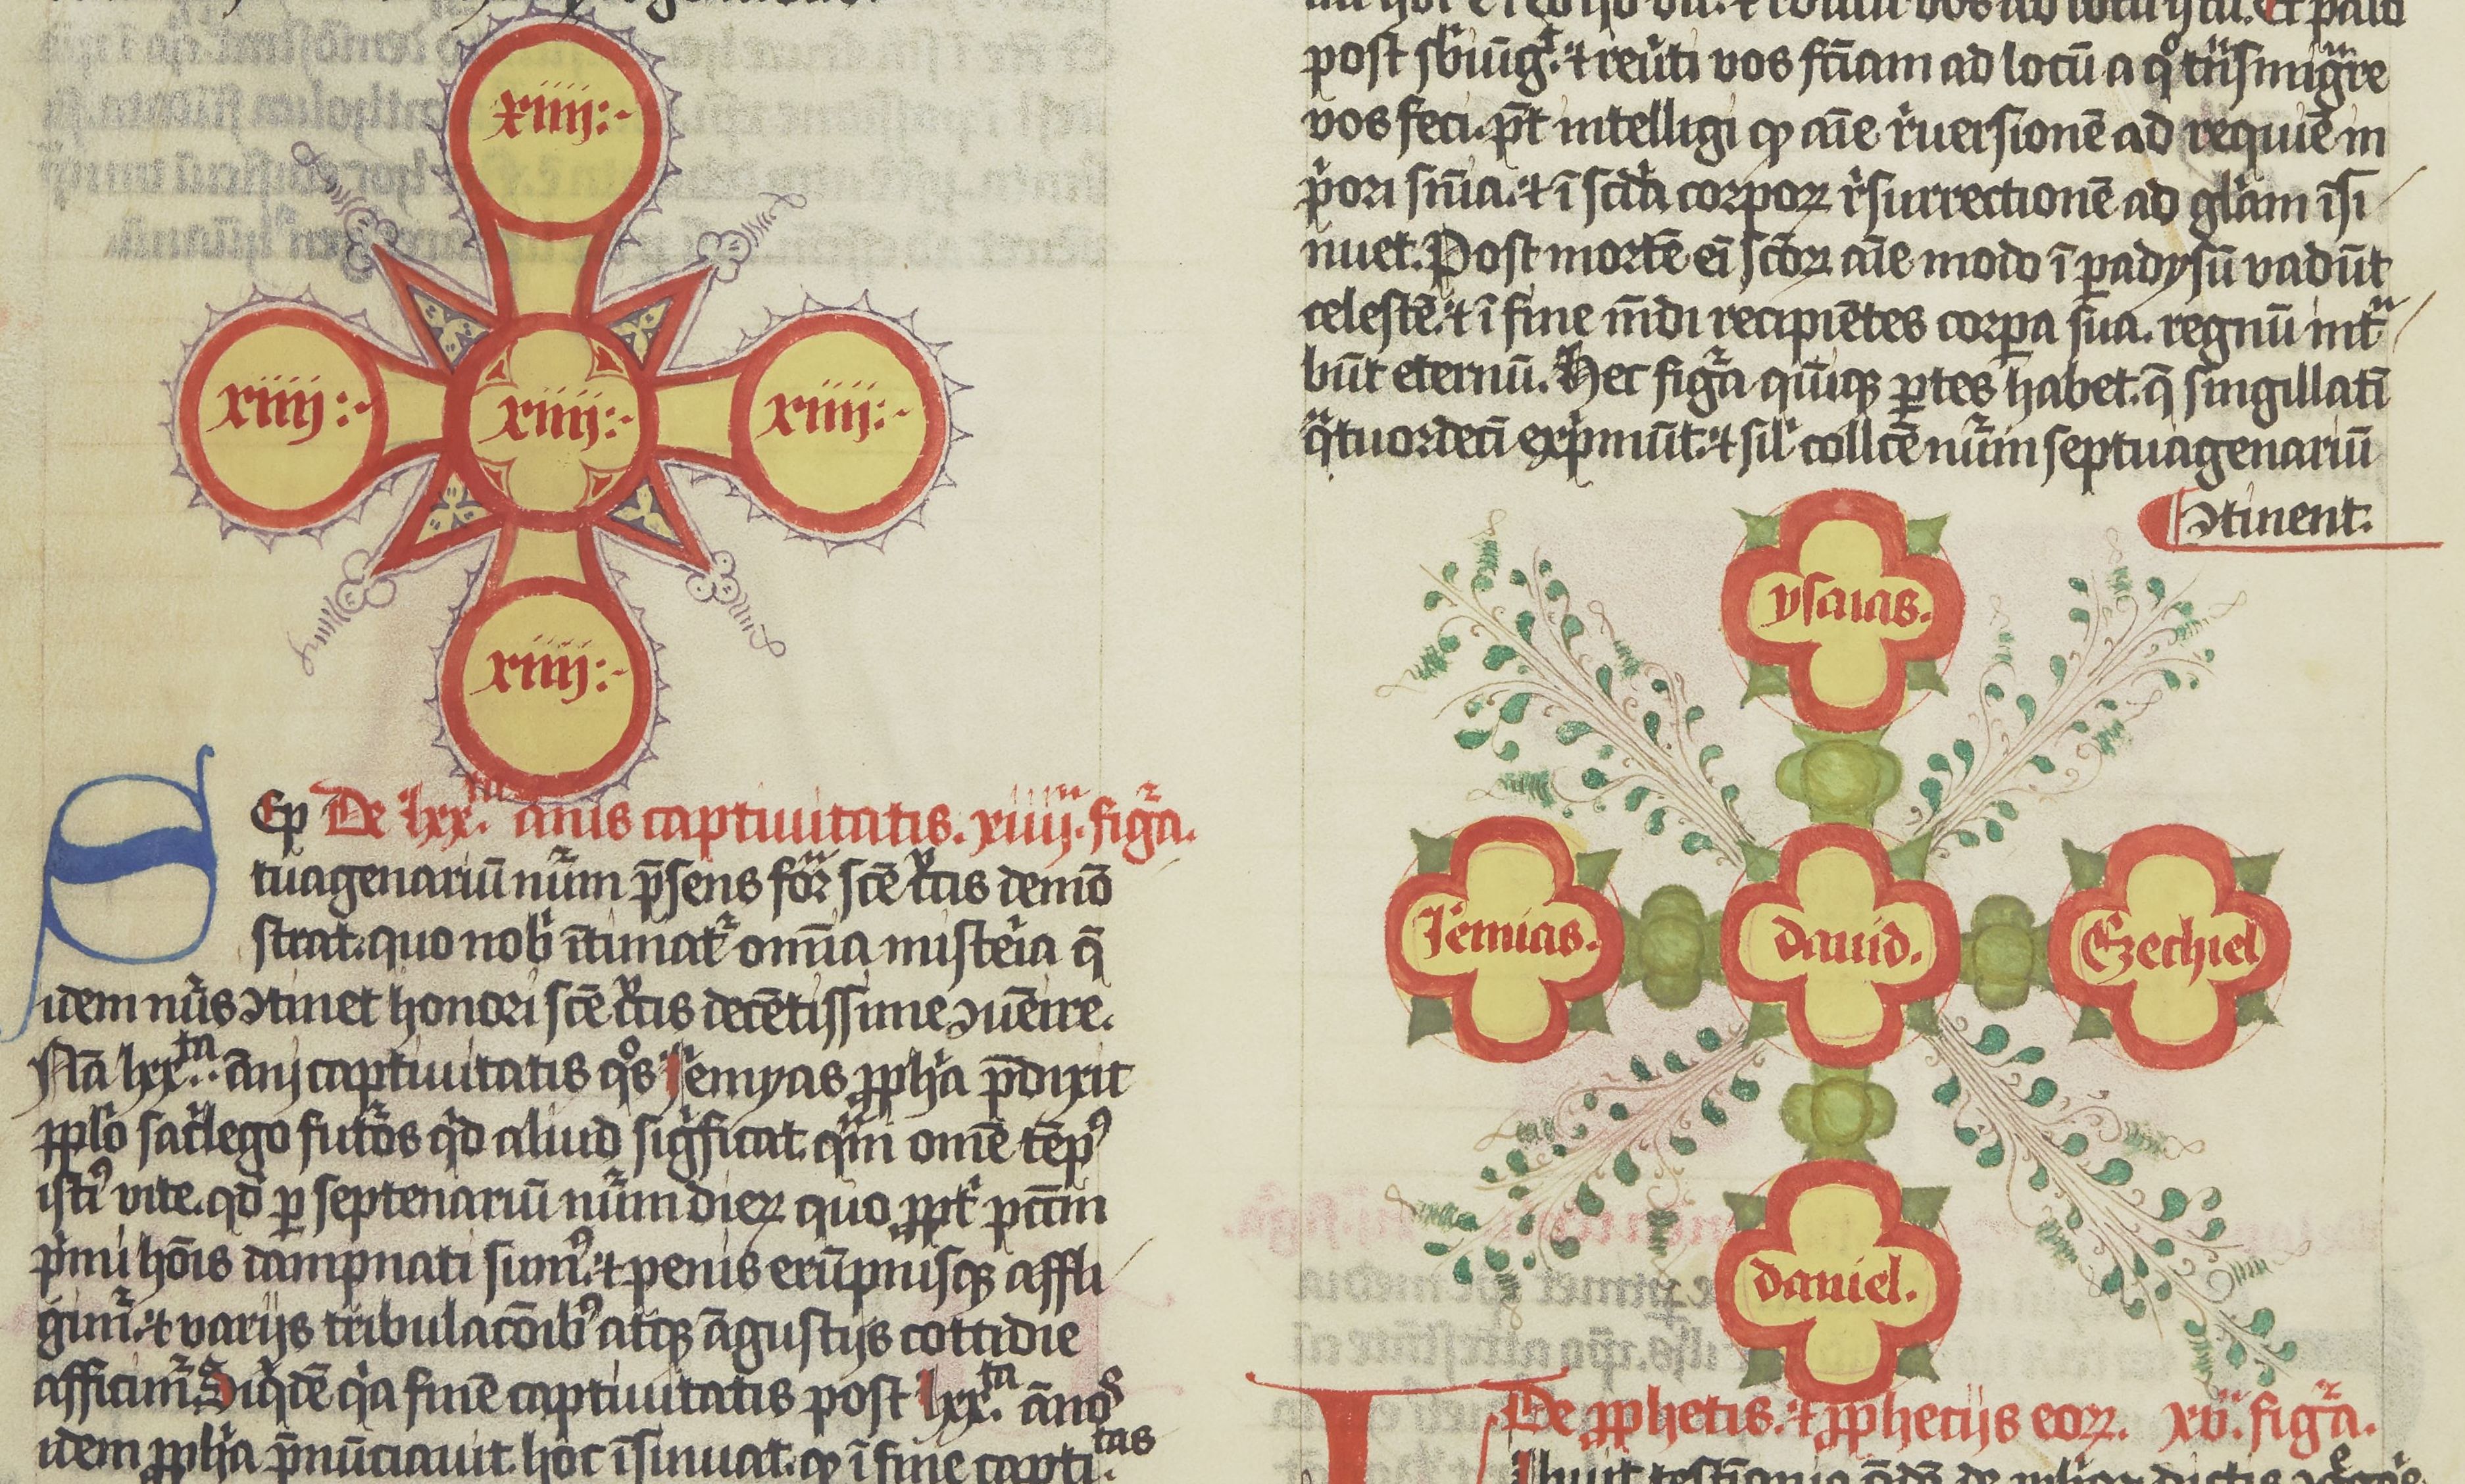 xiiij:~
xiiij:~ xiiij:~ xiiij:~
xiiij:~
Sep De lxx.ta ānis captiuitatis. xiiij. figᵃ.
tuagenariū nūm p̄sens forͣ scē c̃cis demō
strat. quo nob̾ ītimat᷑ omīa mist̾ia q̄
idem nūs ꝯtinet honori scē c̃cis decētissime ꝯuēire.
Nā lxx.ta ānj captiuitatis qͦs Jemyas ꝓph̾a p̄dixit
pplo sac̾lego fut᷑os qͥd aliud sigͥficat. qͣm om̄e tēpꝰ
istiꝰ vite. qd̾ ꝑ septenariū nūm dieꝝ quo ꝓpt̾ pctm̄
pͥmi hoīs dampnati sumꝰ. ⁊ penis erūpnisqꝫ affli
gim᷑. ⁊ varijs tribulacōibꝰ atqꝫ āgustijs cottidie
afficim᷑. Siqͥdē qͥa finē captiuitatis post lxx.ta ānos
idem ꝓph̾a p̄nūciauit. hoc īsinuat. ꝙ ī fine capti.tas
vos ad locū istū. Et pau
post sbiūgͭ. ⁊ reūti vos fac̄iam ad locū a qͦ trͣsmigͣre
vos feci. pt̄ intelligi ꝙ aīe r̾uersionē ad requiē in
pͥori sn̄ia. ⁊ ī scd̾a corpoꝝ r̾surrectionē ad gl̾am īsi
nuet. Post mortē ei scōꝝ aīe modo ī padysū vadūt
celestē. ⁊ ī fine mūdi recipiētes corpa sua. regnū intͣ
būt eternū. Hec figᵃ qͥnqꝫ ꝑtes habet. q̄ singillatī
qͣtuordecī expͥmūt. ⁊ sil̾ coll̾cē nūm septuagenariū
ꝯtinent.
ysaias.
Jēmias. dauid. Ezechiel
daniel.
De ꝓphetis. ⁊ ꝓphecijs eoꝝ. xv. figᵃ.